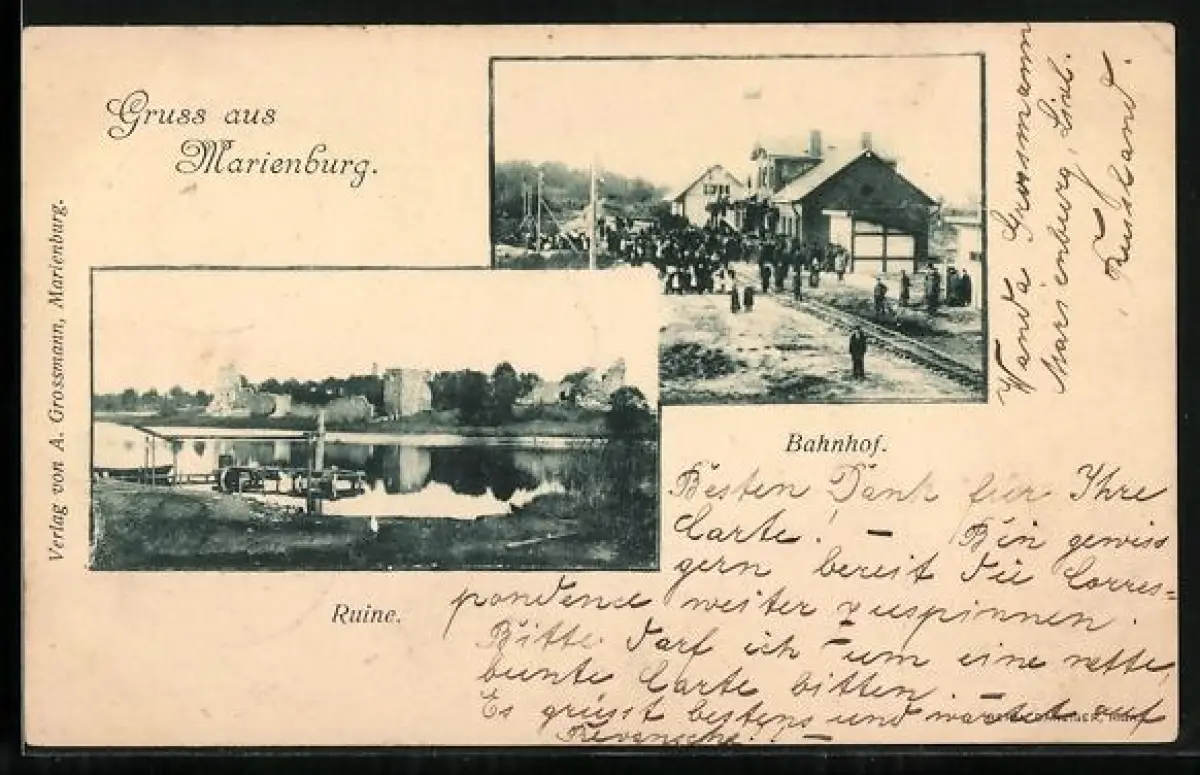 Gruss aus
Marienburg.
Verlag von A. Grossmann, Marienburg.
Bahnhof.
Ruine.
Wanda Grossmann
Marienburg, Livl.
Russland.
Besten Dank für Ihre
Carte! — Bin gewiss
gern bereit die Corres=
pondence weiter zuspinnen.
Bitte darf ich um eine nette,
bunte Carte bitten.
Es grüsst bestens und wartet auf
Revansche!! —